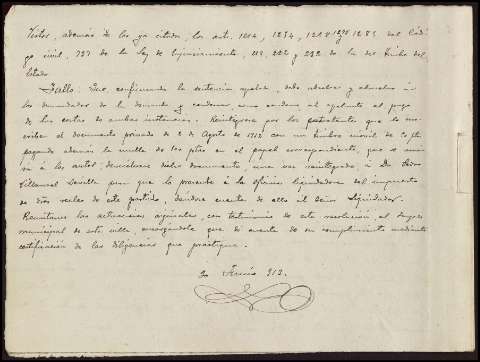 Vistos, además de los ya citados, los art. 1214, 1254, 1258 1278 1283 del Códi-
go civil, 737 de la Ley de Enjuiciamiento, 213, 222 y 232 de la del timbre del
Estado
Fallo: Que, confirmando la sentencia apelada, debo absolver y absuelvo á
los demandados de la demanda y condenar, como condeno al apelante al pago
de las costas de ambas instancias. Reintégrese por los que
el documento privado de 2 de Agosto de 1912 con un timbre móvil de
pagando además la multa de ptas en el papel correspondiente, que se uni-
rá á los autos; devuélvase dicho documento, una vez reintegrado, á D. Pedro
Villanueva para que lo presente á la oficina liquidadora del impuesto
de dros reales de este partido, dándose cuenta de ello al Señor Liquidador.
Remítanse las actuaciones originales, con testimonio de esta resolución al Juzgado
municipal de esta villa, encargándole que dé cuenta de su cumplimiento mediante
certificación de las diligencias que practique.
20 Junio 913.